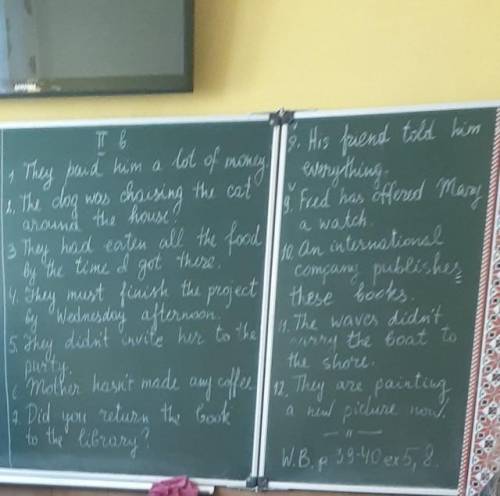 II в
1. They paid him a lot of money.
2. The dog was chaising the cat
around the house.
3. They had eaten all the food
by the time I got there.
4. They must finish the project
by Wednesday afternoon.
5. They didn't invite her to the
party.
6. Mother hasn't made any coffee
7. Did you return the book
to the library?
8. His friend told him
everything.
9. Fred has offered Mary
a watch.
10. An international
company publishes
these books.
11. The waves didn't
carry the boat to
the shore.
12. They are painting
a new picture now.
— " —
W.B. p 39-40 ex 5, 8.